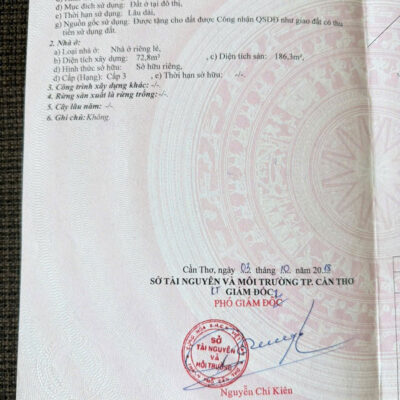 d) Mục đích sử dụng: Đất ở tại đô thị,
e) Thời hạn sử dụng: Lâu dài,
g) Nguồn gốc sử dụng: Được tặng cho đất được Công nhận QSDĐ như giao đất có thu
tiền sử dụng đất.
2. Nhà ở:
a) Loại nhà ở: Nhà ở riêng lẻ,
b) Diện tích xây dựng: 72,8m², c) Diện tích sàn: 186,3m²,
d) Hình thức sở hữu: Sở hữu riêng,
đ) Cấp (Hạng): Cấp 3 , e) Thời hạn sở hữu: -/-.
3. Công trình xây dựng khác: -/-.
4. Rừng sản xuất là rừng trồng: -/-.
5. Cây lâu năm: -/-.
6. Ghi chú: Không.
Cần Thơ, ngày 03 tháng 10 năm 2018
SỞ TÀI NGUYÊN VÀ MÔI TRƯỜNG TP. CẦN THƠ
KT GIÁM ĐỐC
PHÓ GIÁM ĐỐC
SỞ
TÀI NGUYÊN
VÀ
MÔI TRƯỜNG
Nguyễn Chí Kiên